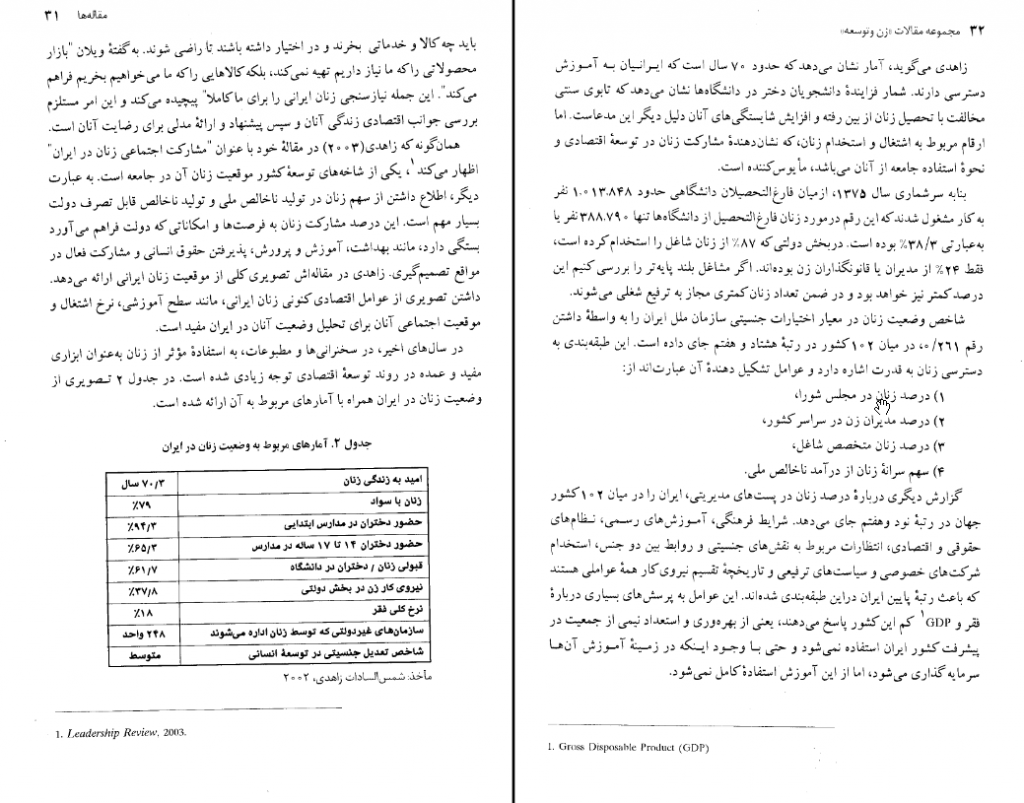 مقاله‌ها ۳۱
باید چه کالا و خدماتی بخرند و در اختیار داشته باشند تا راضی شوند. به گفتهٔ ویلان "بازار
محصولاتی را که ما نیاز داریم تهیه نمی‌کند، بلکه کالاهایی را که ما می‌خواهیم بخریم فراهم
می‌کند". این جمله نیازسنجی زنان ایرانی را برای ما کاملا" پیچیده می‌کند و این امر مستلزم
بررسی جوانب اقتصادی زندگی آنان و سپس پیشنهاد و ارائهٔ مدلی برای رضایت آنان است.
همان‌گونه که زاهدی (۲۰۰۳) در مقالهٔ خود با عنوان "مشارکت اجتماعی زنان در ایران"
اظهار می‌کند۱، یکی از شاخه‌های توسعهٔ کشور موقعیت زنان آن در جامعه است. به عبارت
دیگر، اطلاع داشتن از سهم زنان در تولید ناخالص ملی و تولید ناخالص قابل تصرف دولت
بسیار مهم است. این درصد مشارکت زنان به فرصت‌ها و امکاناتی که دولت فراهم می‌آورد
بستگی دارد، مانند بهداشت، آموزش و پرورش، پذیرفتن حقوق انسانی و مشارکت فعال در
مواقع تصمیم‌گیری. زاهدی در مقاله‌اش تصویری کلی از موقعیت زنان ایرانی ارائه می‌دهد.
داشتن تصویری از عوامل اقتصادی کنونی زنان ایرانی، مانند سطح آموزشی، نرخ اشتغال و
موقعیت اجتماعی آنان برای تحلیل وضعیت آنان در ایران مفید است.
در سال‌های اخیر، در سخنرانی‌ها و مطبوعات، به استفادهٔ مؤثر از زنان به‌عنوان ابزاری
مفید و عمده در روند توسعهٔ اقتصادی توجه زیادی شده است. در جدول ۲ تصویری از
وضعیت زنان در ایران همراه با آمارهای مربوط به آن ارائه شده است.
جدول ۲. آمارهای مربوط به وضعیت زنان در ایران
امید به زندگی زنان ۷۰/۳ سال
زنان با سواد ۷۹٪
حضور دختران در مدارس ابتدایی ۹۴/۳٪
حضور دختران ۱۴ تا ۱۷ ساله در مدارس ۶۵/۳٪
قبولی زنان / دختران در دانشگاه ۶۱/۷٪
نیروی کار زن در بخش دولتی ۳۷/۸٪
نرخ کلی فقر ۱۸٪
سازمان‌های غیردولتی که توسط زنان اداره می‌شوند ۲۴۸ واحد
شاخص تعدیل جنسیتی در توسعهٔ انسانی متوسط
مأخذ: شمس‌السادات زاهدی، ۲۰۰۲
1. Leadership Review, 2003.
۳۲ مجموعه مقالات «زن و توسعه»
زاهدی می‌گوید، آمار نشان می‌دهد که حدود ۷۰ سال است که ایرانیان به آموزش
دسترسی دارند. شمار فزایندهٔ دانشجویان دختر در دانشگاه‌ها نشان می‌دهد که تابوی سنتی
مخالفت با تحصیل زنان از بین رفته و افزایش شایستگی‌های آنان دلیل دیگر این مدعاست. اما
ارقام مربوط به اشتغال و استخدام زنان، که نشان‌دهندهٔ مشارکت زنان در توسعهٔ اقتصادی و
نحوهٔ استفاده جامعه از آنان می‌باشد، مأیوس‌کننده است.
بنابه سرشماری سال ۱۳۷۵، ازمیان فارغ‌التحصیلان دانشگاهی حدود ۱.۰۱۳.۸۴۸ نفر
به کار مشغول شدند که این رقم درمورد زنان فارغ‌التحصیل از دانشگاه‌ها تنها ۳۸۸.۷۹۰ نفر یا
به‌عبارتی ۳۸/۳٪ بوده است. دربخش دولتی که ۸۷٪ از زنان شاغل را استخدام کرده است،
فقط ۲۴٪ از مدیران یا قانونگذاران زن بوده‌اند. اگر مشاغل بلند پایه‌تر را بررسی کنیم این
درصد کمتر نیز خواهد بود و در ضمن تعداد زنان کمتری مجاز به ترفیع شغلی می‌شوند.
شاخص وضعیت زنان در معیار اختیارات جنسیتی سازمان ملل ایران را به واسطهٔ داشتن
رقم ۰/۲۶۱، در میان ۱۰۲ کشور در رتبهٔ هشتاد و هفتم جای داده است. این طبقه‌بندی به
دسترسی زنان به قدرت اشاره دارد و عوامل تشکیل دهندهٔ آن عبارت‌اند از:
۱) درصد زنان در مجلس شورا،
۲) درصد مدیران زن در سراسر کشور،
۳) درصد زنان متخصص شاغل،
۴) سهم سرانهٔ زنان از درآمد ناخالص ملی.
گزارش دیگری دربارهٔ درصد زنان در پست‌های مدیریتی، ایران را در میان ۱۰۲ کشور
جهان در رتبهٔ نود وهفتم جای می‌دهد. شرایط فرهنگی، آموزش‌های رسمی، نظام‌های
حقوقی و اقتصادی، انتظارات مربوط به نقش‌های جنسیتی و روابط بین دو جنس، استخدام
شرکت‌های خصوصی و سیاست‌های ترفیعی و تاریخچهٔ تقسیم نیروی کار همهٔ عواملی هستند
که باعث رتبهٔ پایین ایران دراین طبقه‌بندی شده‌اند. این عوامل به پرسش‌های بسیاری دربارهٔ
فقر و GDP۱ کم این کشور پاسخ می‌دهند، یعنی از بهره‌وری و استعداد نیمی از جمعیت در
پیشرفت کشور ایران استفاده نمی‌شود و حتی با وجود اینکه در زمینهٔ آموزش آن‌ها
سرمایه گذاری می‌شود، اما از این آموزش استفادهٔ کامل نمی‌شود.
1. Gross Disposable Product (GDP)